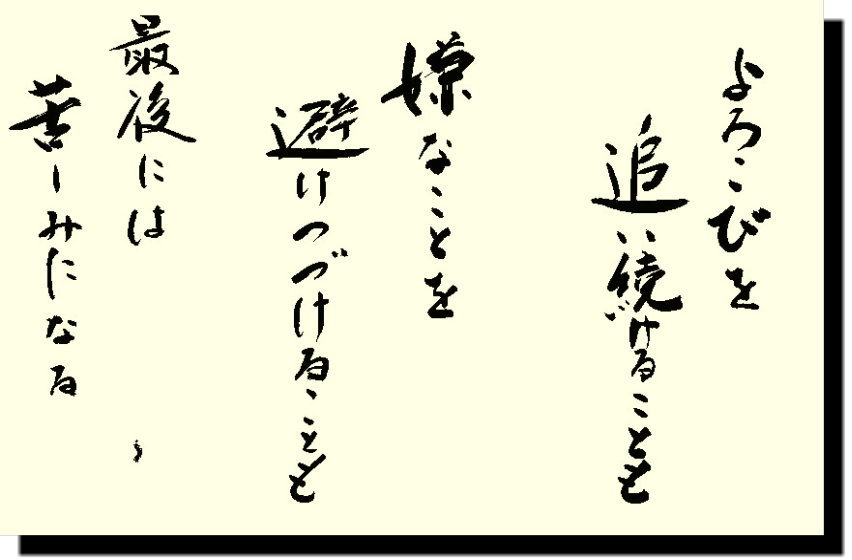 よろこびを
追い続けることも
嫌なことを
避けつづけることも
最後には
苦しみになる